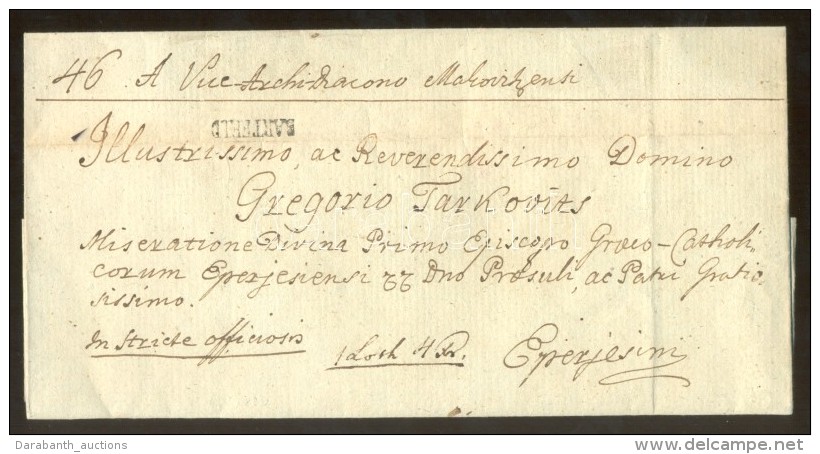 46 A Vice-Archidiacono Makovitzensi
BARTFELD
Illustrissimo, ac Reverendissimo Domino
Gregorio Tarkovits
Miseratione Divina Primo Episcopo Græco-Catholi
corum Eperjesiensi Dno Præsuli, ac Patri Gratio
sissimo.
In Stricte officiosis
1 Loth 4
Eperjesini
Darabanth_auctions
delcampe.net